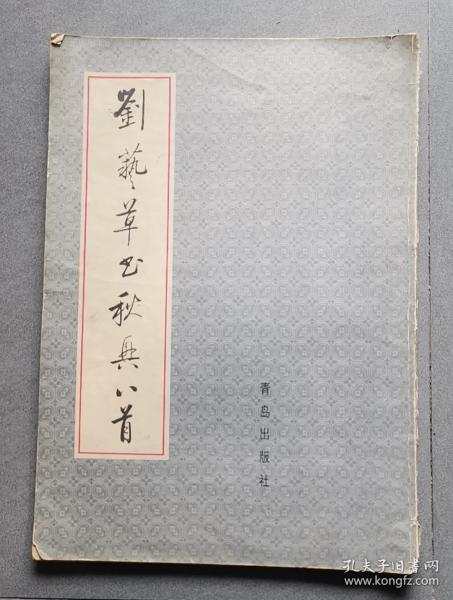 劉藝草书秋兴八首
青岛出版社
孔夫子旧书网
www.kongfz.com